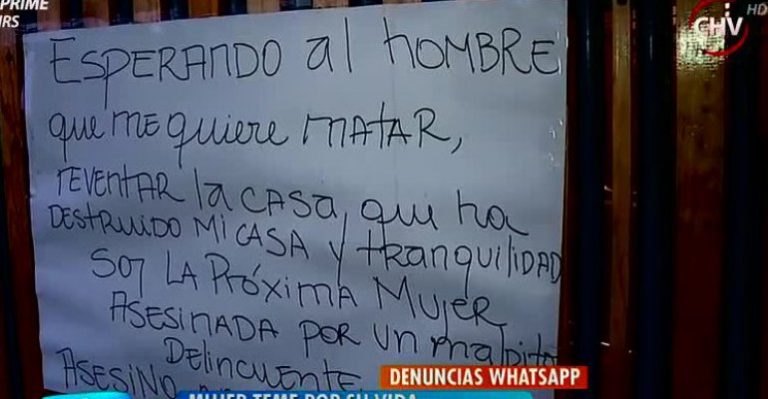 PRIME
CHV HD
ESPERANDO al HOMBRE
que me quiere MATAR,
REVENTAR la CASA, que ha
DESTRUIDO MI CASA y tranquiliDAD
SOY LA PRÓXIMA MUJER
ASESINADA POR un malDito
DELINCUENTE
ASESINO
DENUNCIAS WHATSAPP
MUJER TEME POR SU VIDA